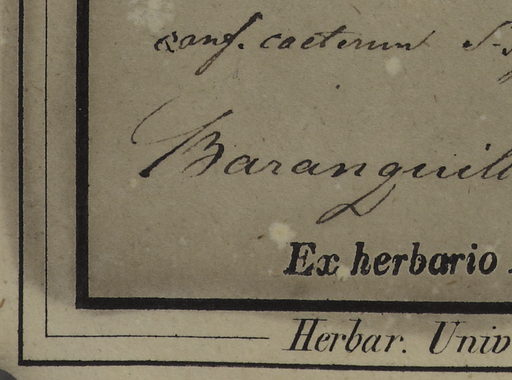 conf. caeterum
Baranquill
Ex herbario
Herbar. Univ